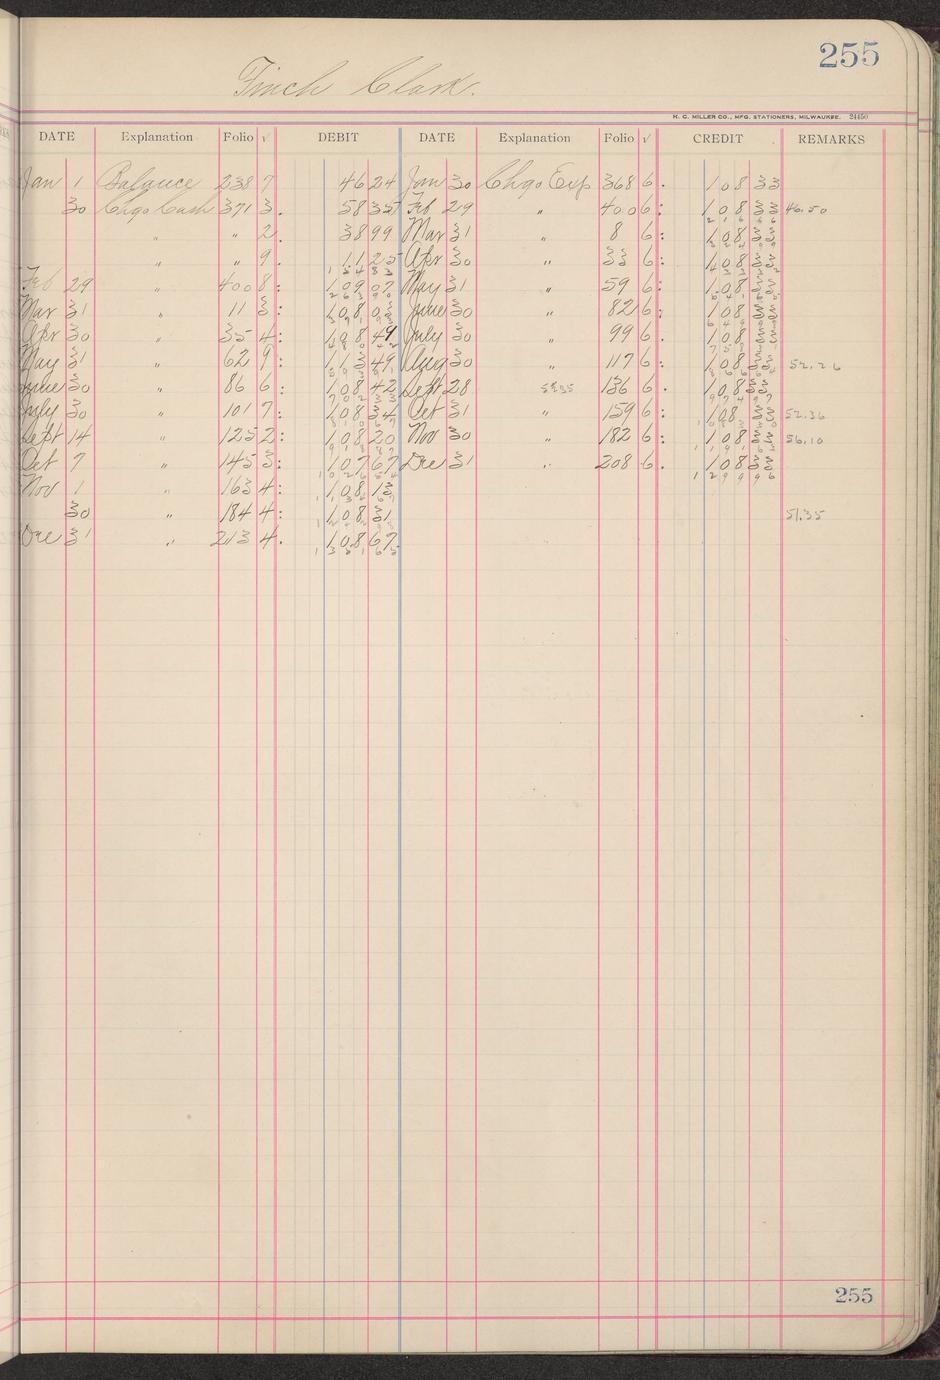 255
Finch Clark.
H. C. MILLER CO., MFG. STATIONERS, MILWAUKEE. 24450
DATE Explanation Folio √ DEBIT DATE Explanation Folio √ CREDIT REMARKS
Jan 1 Balance 238 7 46 24 Jan 30 Chgo Exp 368 6. 108 33
30 Chgo Cash 371 3. 58 35 Feb 29 " 400 6: 108 33 46.50
" " 2. 38 99 Mar 31 " 8 6: 108 33
" " 9. 11 25 Apr 30 " 33 6: 108 33
Feb 29 " 400 8: 109 07 May 31 " 59 6: 108 33
Mar 31 " 11 3: 108 03 June 30 " 82 6: 108 33
Apr 30 " 35 4: 108 49 July 30 " 99 6. 108 33
May 31 " 62 9: 113 49 Aug 30 " 117 6: 108 33 52.26
June 30 " 86 6: 108 42 Sept 28 136 6. 108 33
July 30 " 101 7: 108 34 Oct 31 " 159 6: 108 33 52.36
Sept 14 " 125 2: 108 20 Nov 30 " 182 6: 108 33 56.10
Oct 7 " 145 3: 107 67 Dec 31 " 208 6. 108 33
Nov 1 " 163 4: 108 13
30 " 184 4: 108 31 51.35
Dec 31 " 213 4. 108 67
255